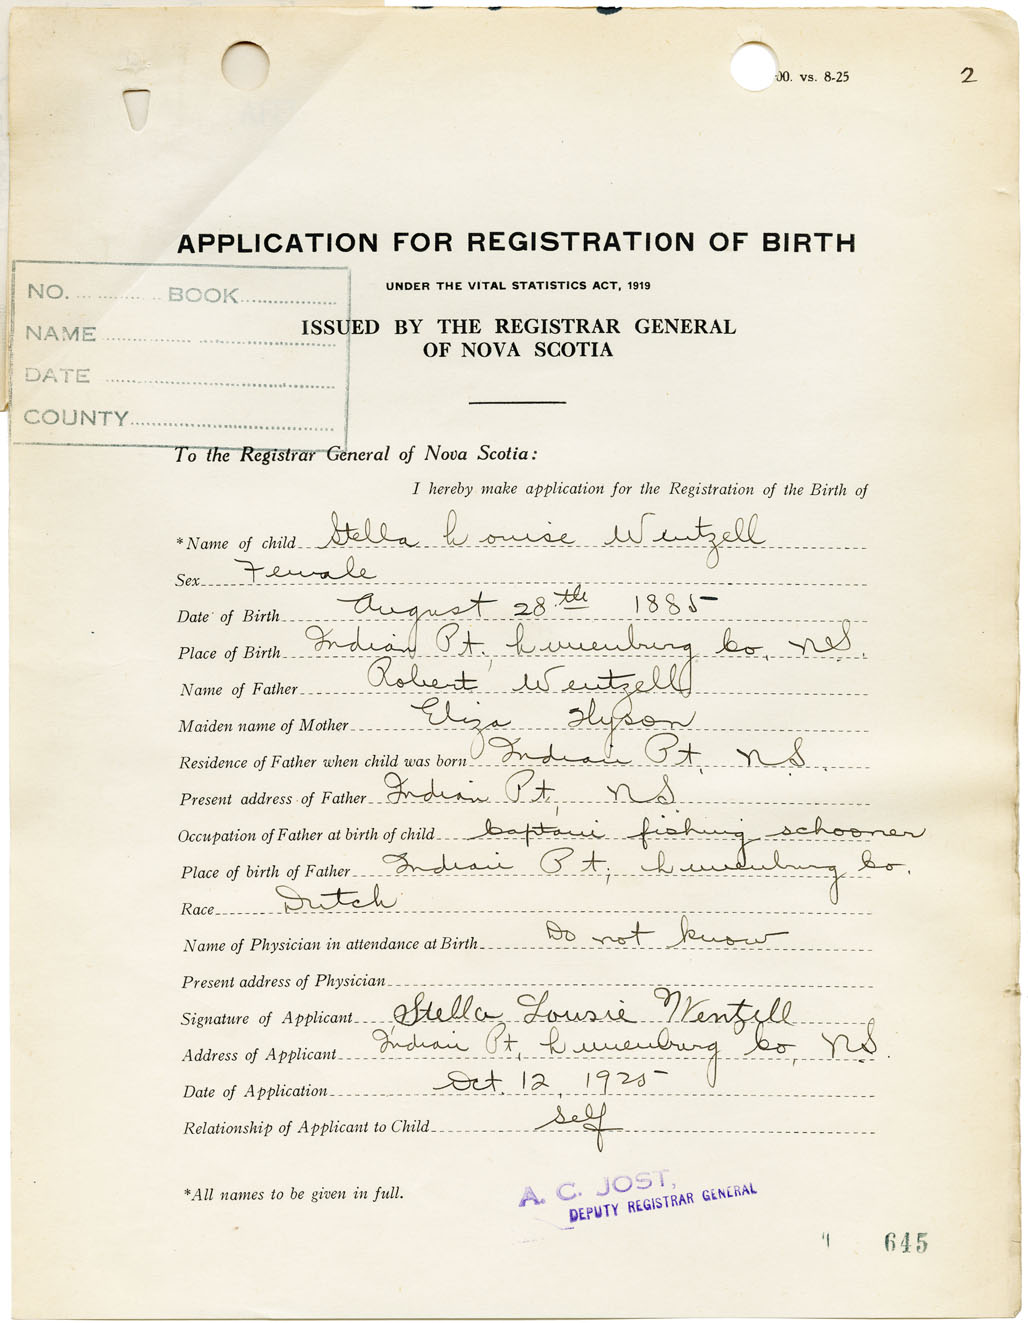 00. vs. 8-25
2
APPLICATION FOR REGISTRATION OF BIRTH
UNDER THE VITAL STATISTICS ACT, 1919
ISSUED BY THE REGISTRAR GENERAL
OF NOVA SCOTIA
NO. BOOK
NAME
DATE
COUNTY
To the Registrar General of Nova Scotia:
I hereby make application for the Registration of the Birth of
*Name of child Stella Louise Wentzell
Sex Female
Date of Birth August 28th 1885
Place of Birth Indian Pt. Lunenburg Co, NS.
Name of Father Robert Wentzell
Maiden name of Mother Eliza Hyson
Residence of Father when child was born Indian Pt, N.S.
Present address of Father Indian Pt, NS.
Occupation of Father at birth of child Captain fishing schooner
Place of birth of Father Indian Pt; Lunenburg Co.
Race Dutch
Name of Physician in attendance at Birth Do not know
Present address of Physician
Signature of Applicant Stella Lousie Wentzell
Address of Applicant Indian Pt, Lunenburg Co, NS.
Date of Application Oct. 12, 1925
Relationship of Applicant to Child self
*All names to be given in full.
A. C. JOST,
DEPUTY REGISTRAR GENERAL
645